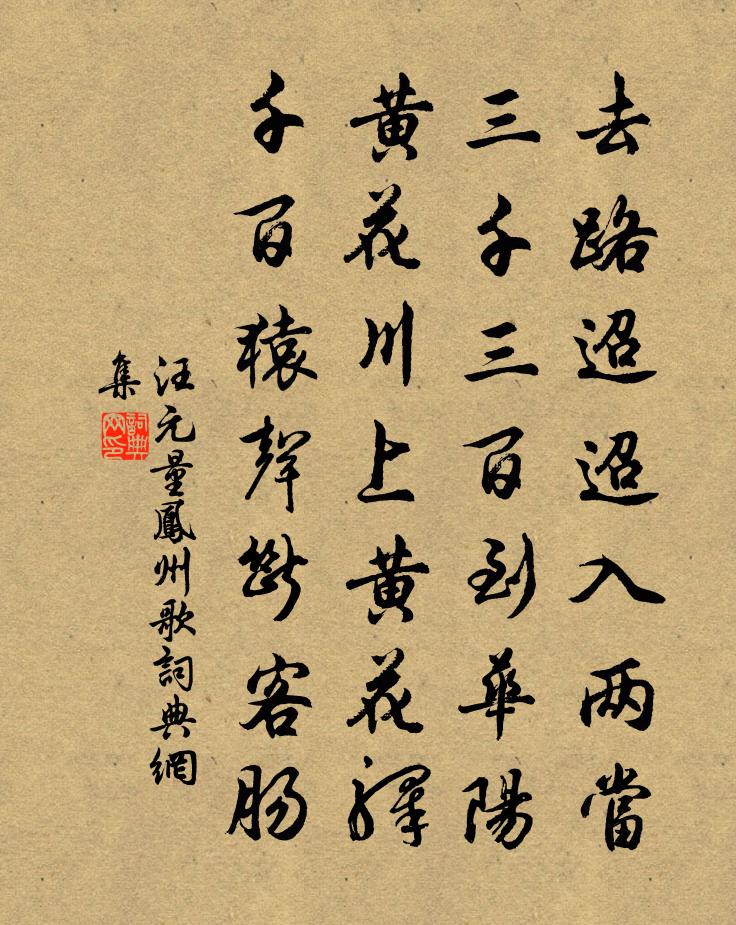 去路迢迢入两當
三千三百到華陽
黃花川上黃花驛
千百猿聲斷客腸
汪元量鳳州歌詞典網
集
詞典網印